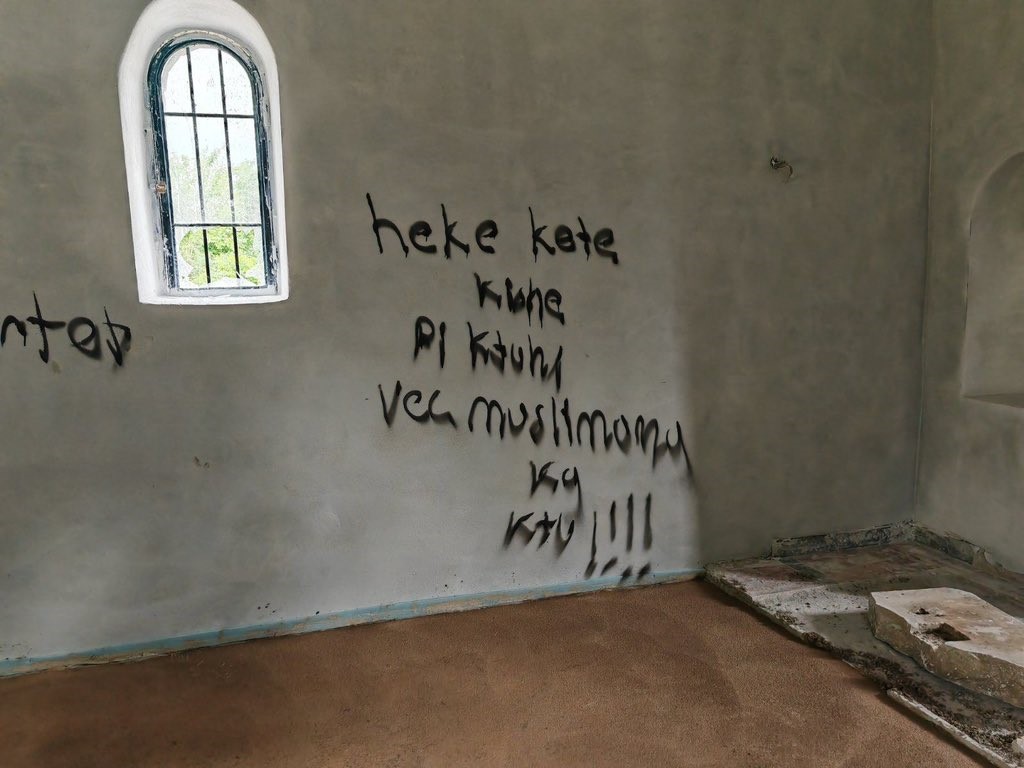 heke kete
kishe
PI ktuhi
vec muslimana
ka
ktu !!!!